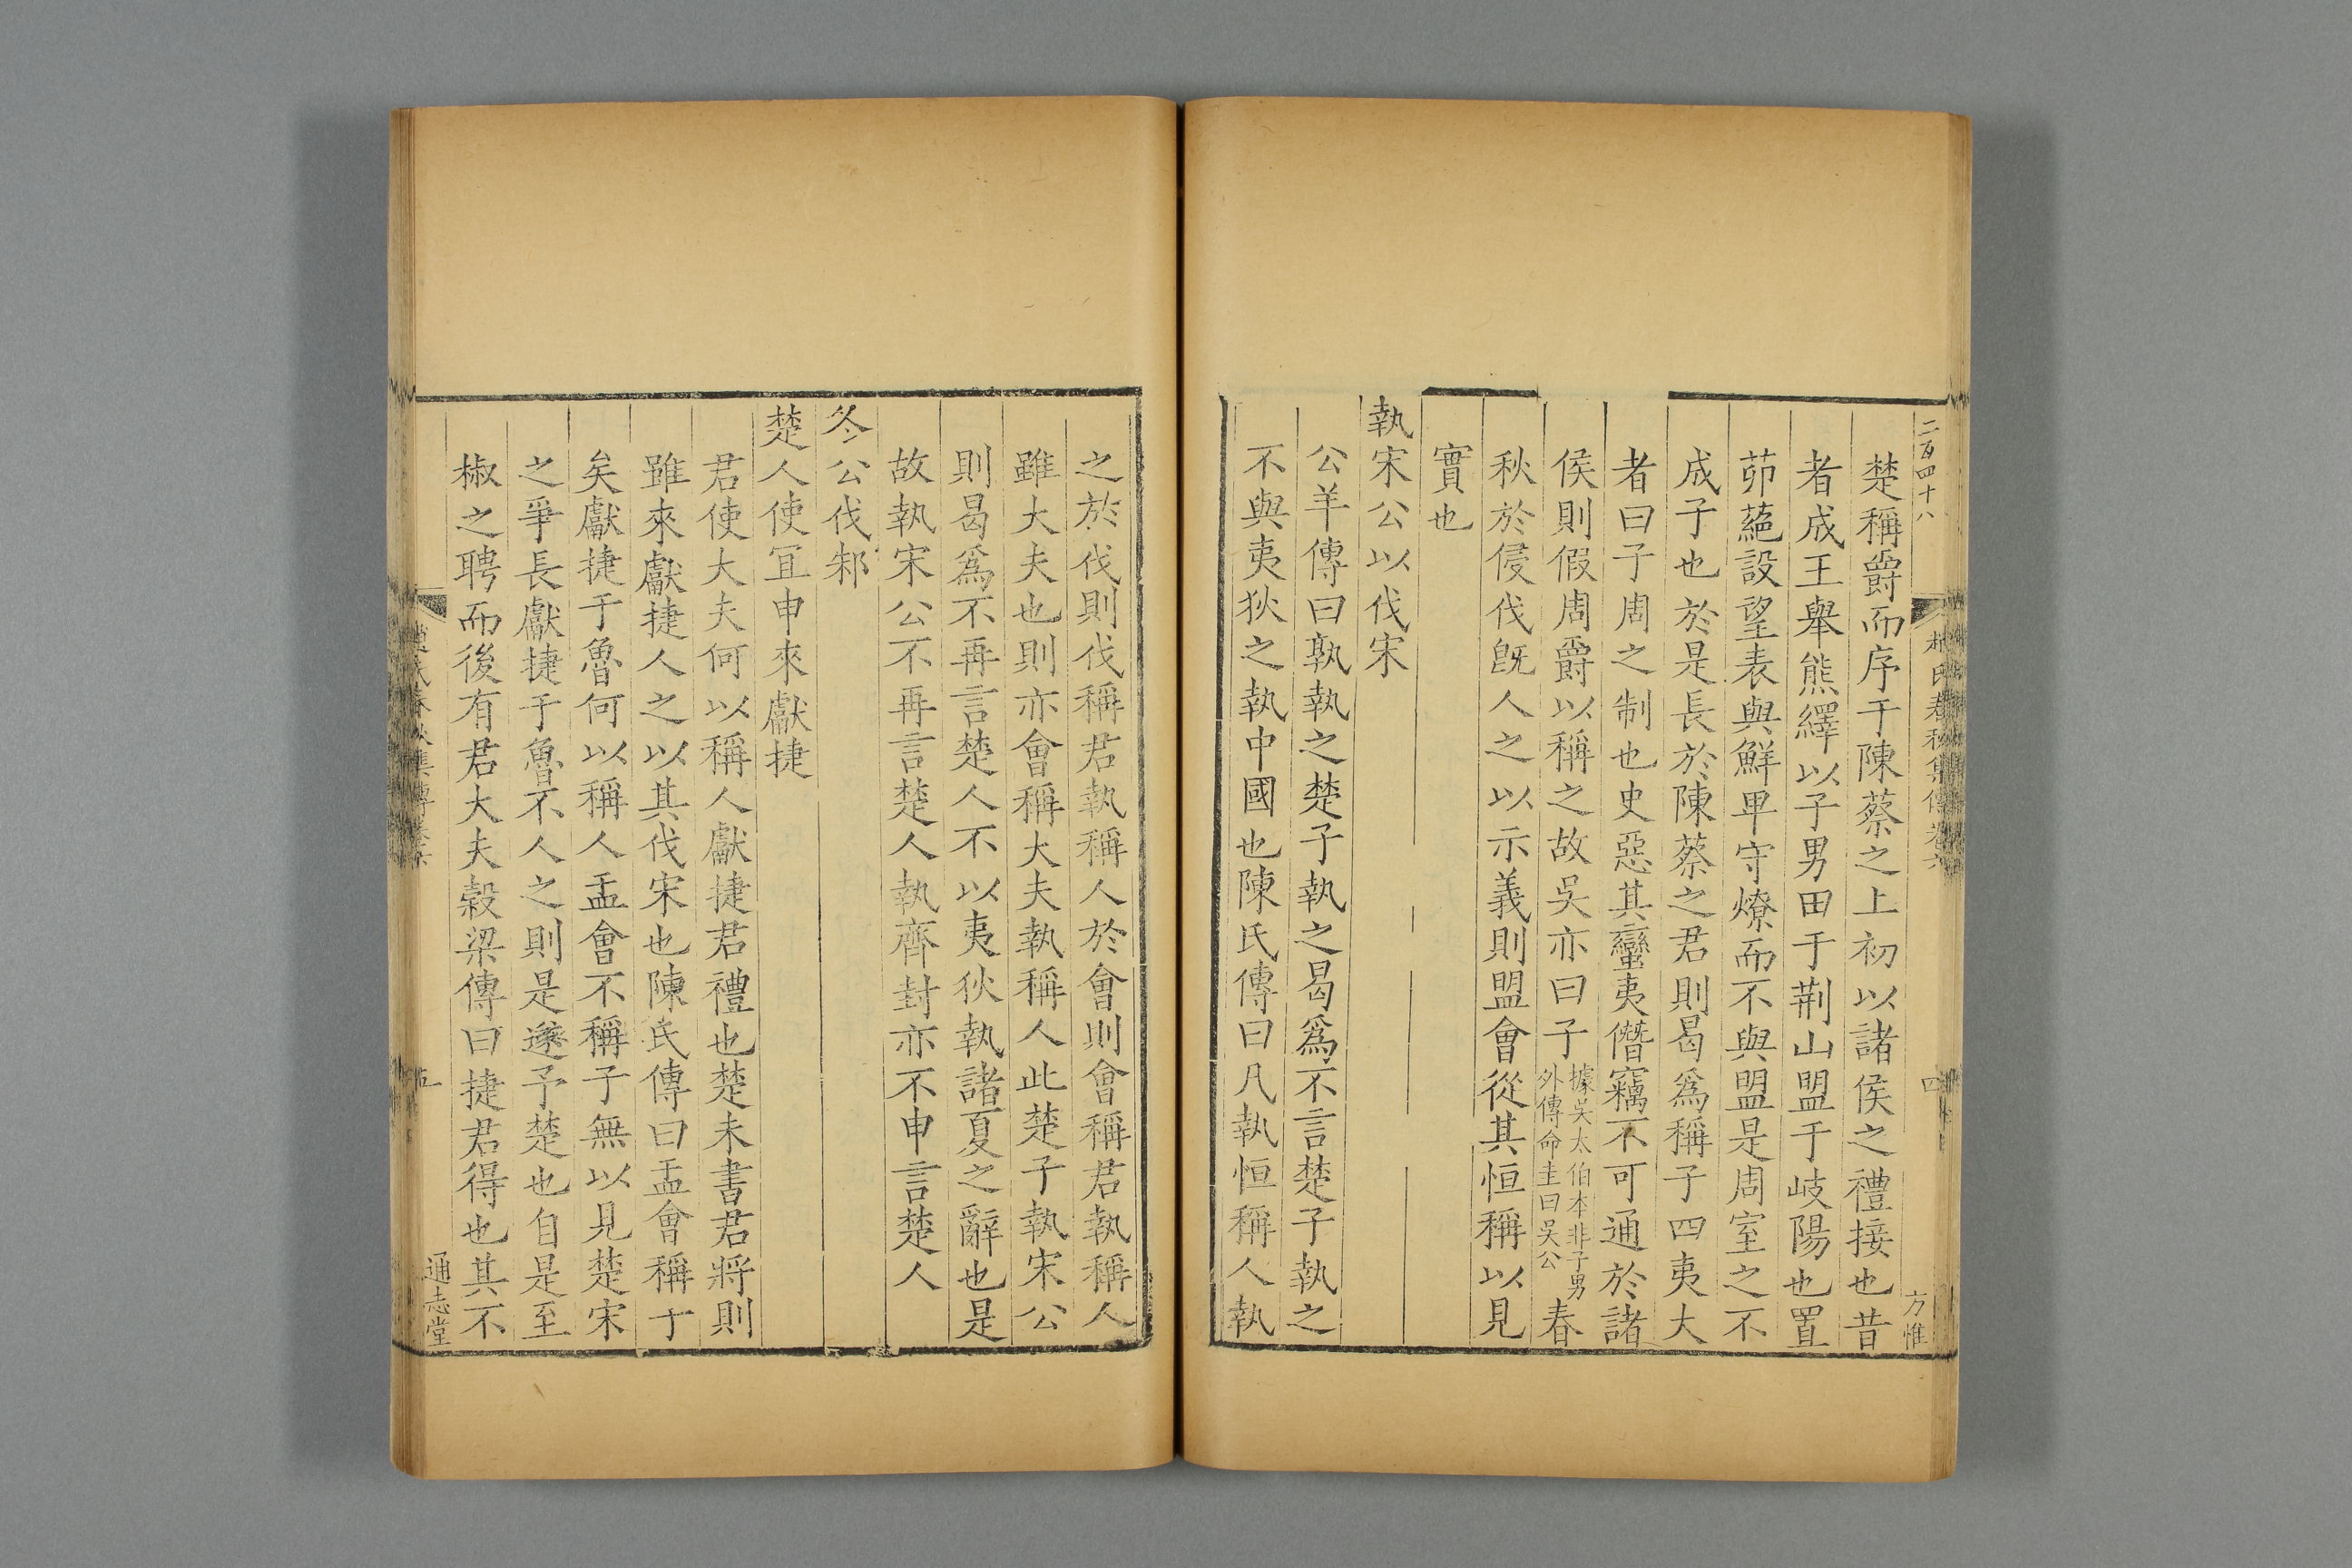 二百四十八
楚稱爵而序于陳蔡之上初以諸侯之禮接也昔
者成王舉熊繹以子男田于荆山盟于岐陽也置
茆蕝設望表與鮮卑守燎而不與盟是周室之不
成子也於是長於陳蔡之君則曷爲稱子四夷大
者曰子周之制也史惡其蠻夷僭竊不可通於諸
侯則假周爵以稱之故吳亦曰子據吳太伯本非子男外傳命圭曰吳公春
秋於侵伐旣人之以示義則盟會從其恒稱以見
實也
執宋公以伐宋
公羊傳曰孰執之楚子執之曷爲不言楚子執之
不與夷狄之執中國也陳氏傳曰凡執恒稱人執
四
方惟
之於伐則伐稱君執稱人於會則會稱君執稱人
雖大夫也則亦會稱大夫執稱人此楚子執宋公
則曷爲不再言楚人不以夷狄執諸夏之辭也是
故執宋公不再言楚人執齊封亦不申言楚人
冬公伐邾
楚人使宜申來獻捷
君使大夫何以稱人獻捷君禮也楚未書君將則
雖來獻捷人之以其伐宋也陳氏傳曰盂會稱于
矣獻捷于魯何以稱人盂會不稱子無以見楚宋
之爭長獻捷于魯不人之則是遂予楚也自是至
椒之聘而後有君大夫穀梁傳曰捷軍得也其不
五
通志堂